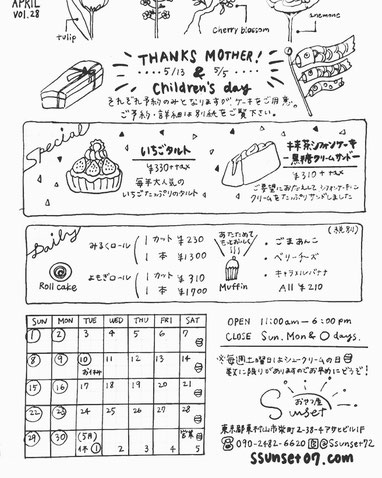 APRIL
VOL.28
tulip
cherry blossom
anemone
THANKS MOTHER!
5/13 & 5/5
Children's day
それぞれ予約のみとなりますが、ケーキをご用意。
ご予約・詳細は別紙をご覧下さい。
Special
いちごタルト
¥330+tax
毎年大人気の
いちごたっぷりのタルト
抹茶シフォンケーキ
黒糖クリームサンド
¥310+tax
ご要望におこたえして シフォンケーキに
クリームをたっぷりサンドしました
Daily
(税別)
みるくロール
1カット ¥230
1本 ¥1300
よもぎロール
1カット ¥310
1本 ¥1700
Roll cake
あたためて
もっとおいしく
Muffin
・ごまあんこ
・ベリーチーズ
・キャラメルバナナ
All ¥210
SUN MON TUE WED THU FRI SAT
1 2 3 4 5 6 7
8 9 10 11 12 13 14
お休み
15 16 17 18 19 20 21
22 23 24 25 26 27 28
29 30 (5月) 営業
休 1 2 3 4 5
OPEN 11:00am-6:00pm
CLOSE Sun. Mon & ○ days.
※毎週土曜日はシュークリームの日
数に限りがありますのでお早めにどうぞ!
おやつ屋
Sunset
東京都東村山市栄町2-38-4アサヒビル1F
090-2482-6620 @Ssunset72
ssunset07.com